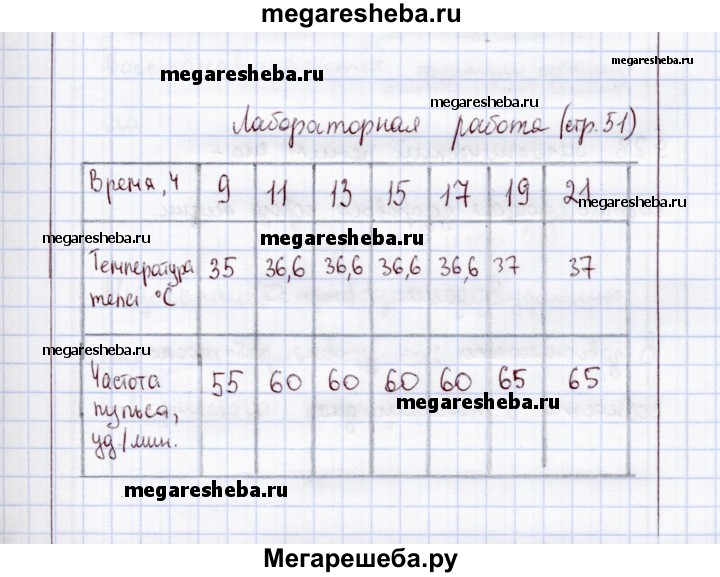 megaresheba.ru
megaresheba.ru
megaresheba.ru
megaresheba.ru
Лабораторная работа (стр. 51)
Время, ч 9 11 13 15 17 19 21
megaresheba.ru
megaresheba.ru
megaresheba.ru
Температура тела °C 35 36,6 36,6 36,6 36,6 37 37
megaresheba.ru
Частота пульса, уд/мин. 55 60 60 60 60 65 65
megaresheba.ru
megaresheba.ru
Мегарешеба.ру